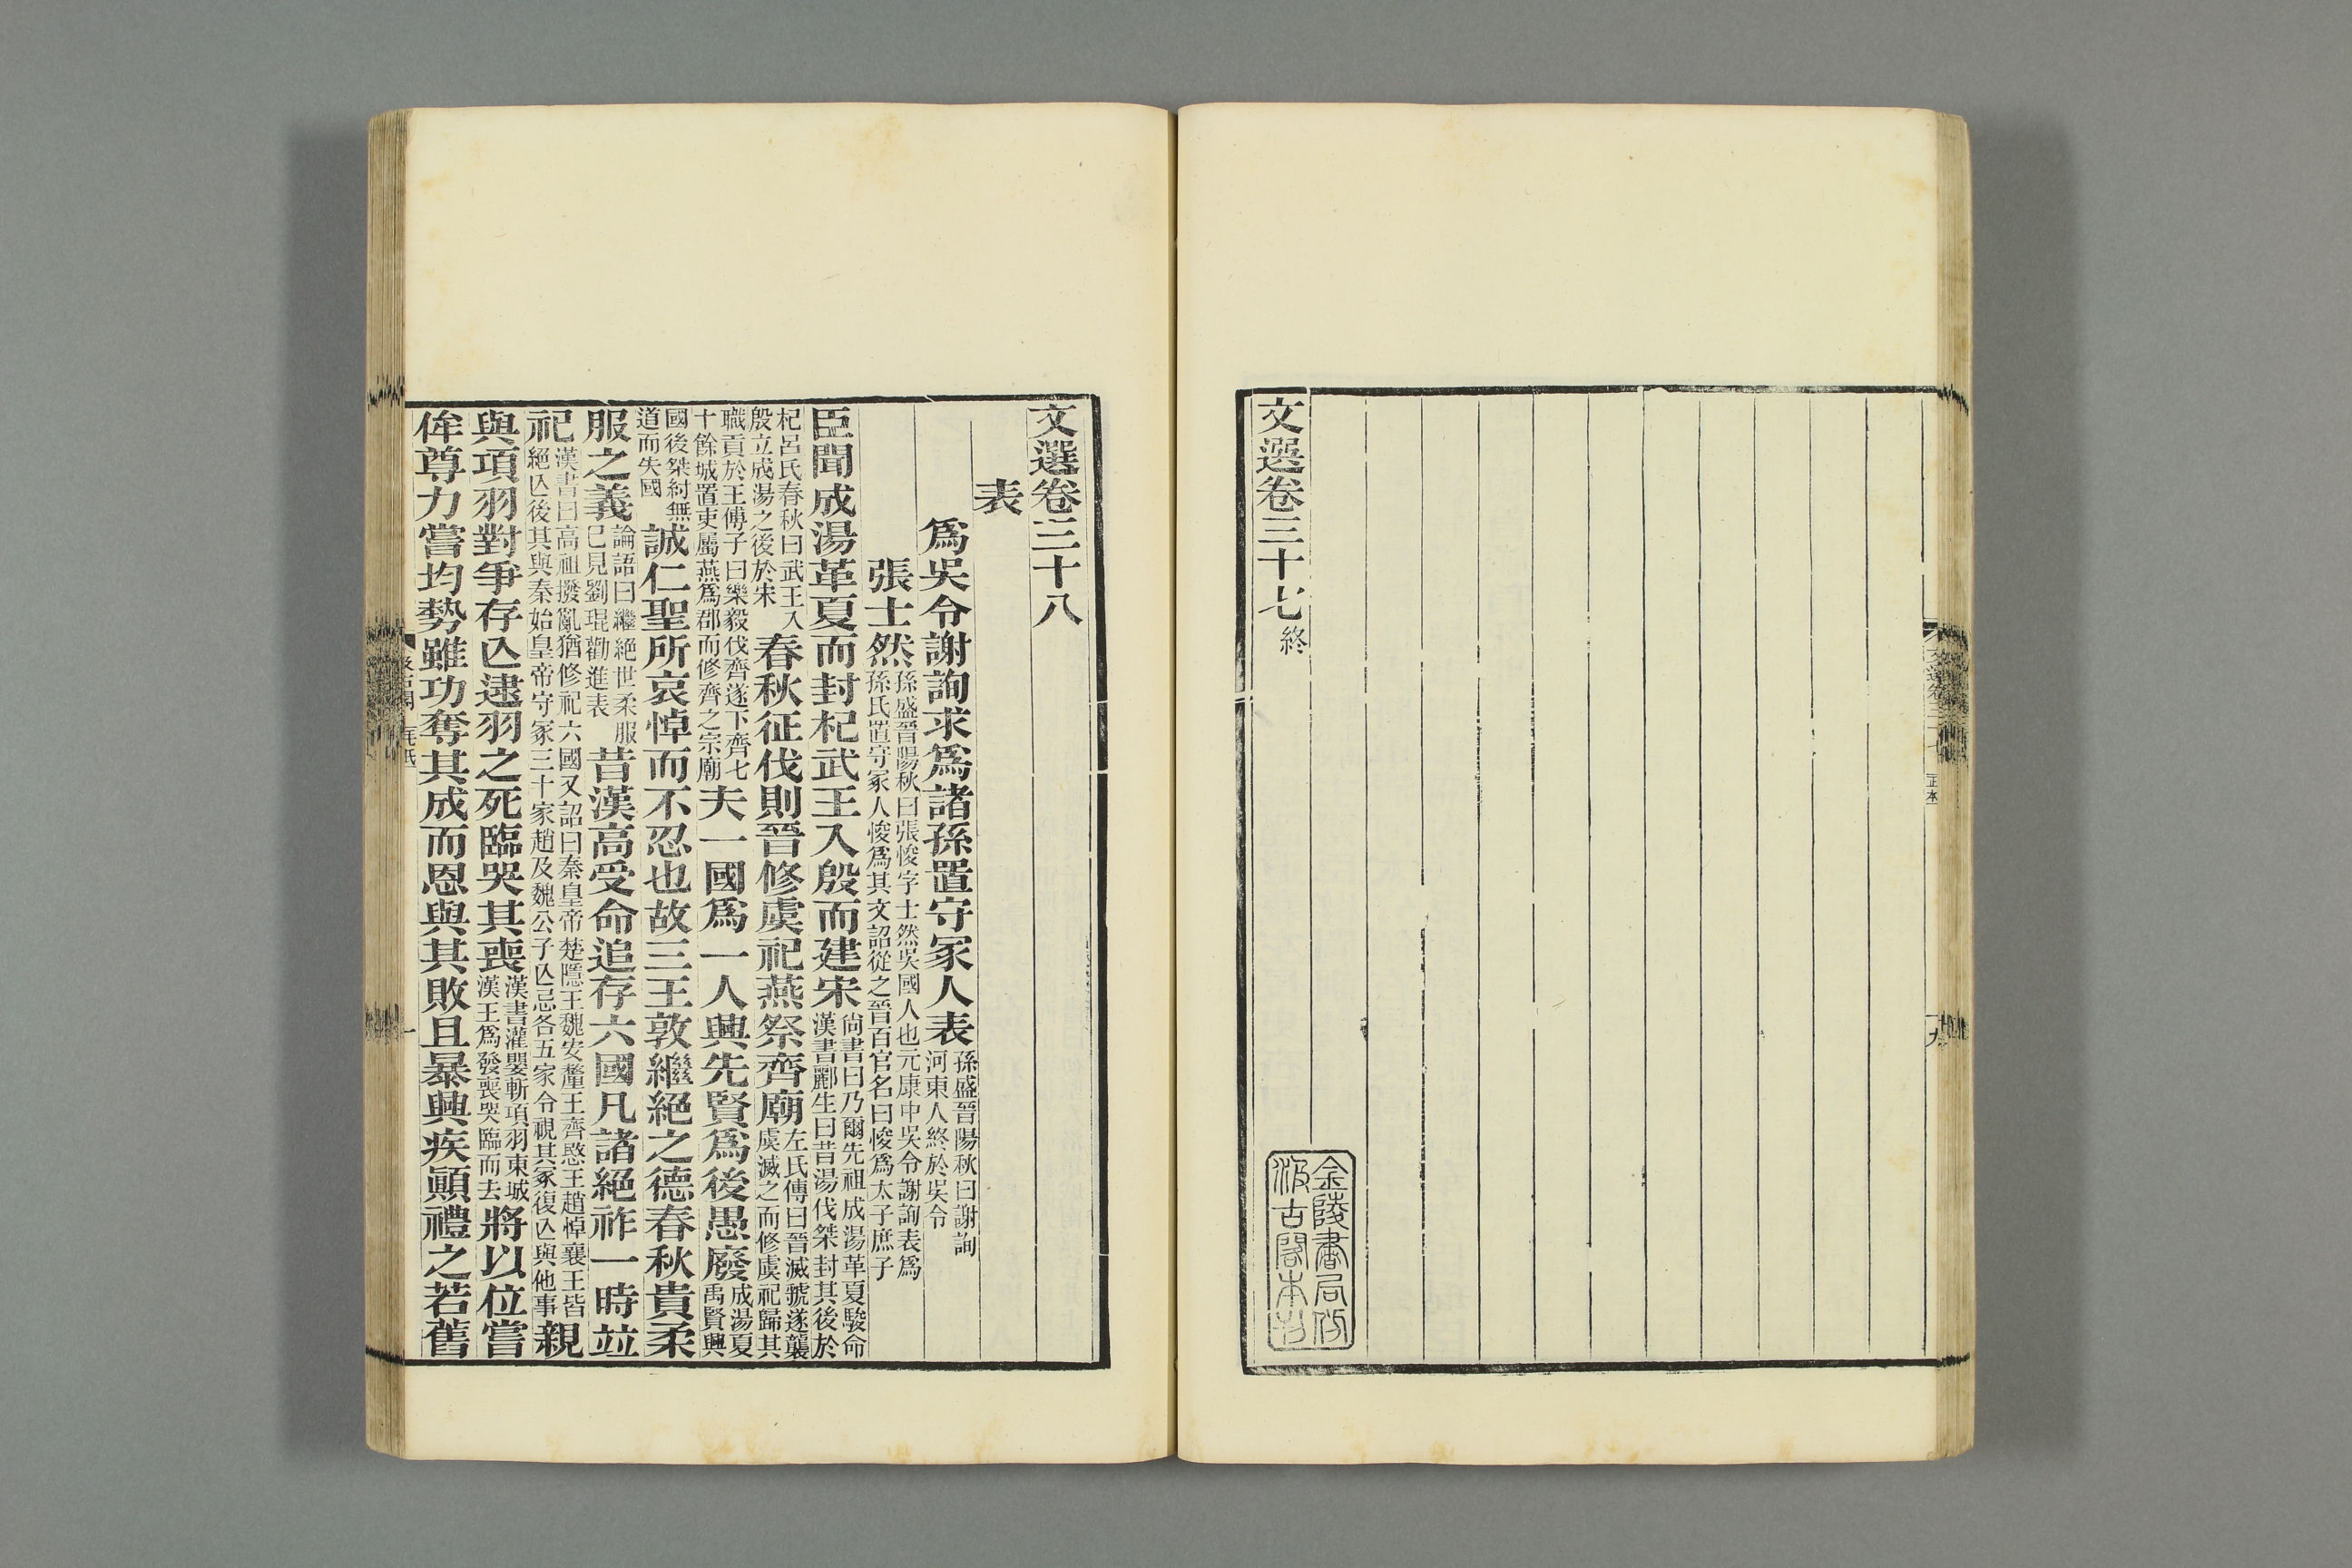 文選卷三十七 終
金陵書局仿
汲古閣本刊
文選卷三十八
表
爲吳令謝詢求爲諸孫置守冢人表 孫盛晉陽秋曰謝詢河東人終於吳令
張士然 孫盛晉陽秋曰張悛字士然吳國人也元康中吳令謝詢表爲孫氏置守冢人悛爲其文詔從之晉百官名曰悛爲太子庶子
臣聞成湯革夏而封杞武王入殷而建宋 尚書曰乃爾先祖成湯革夏駿命漢書酈生曰昔湯伐桀封其後於
杞呂氏春秋曰武王入殷立成湯之後於宋 春秋征伐則晉修虞祀燕祭齊廟 左氏傳曰晉滅虢遂襲虞滅之而修虞祀歸其
職貢於王傅子曰樂毅伐齊遂下齊七十餘城置吏屬燕爲郡而修齊之宗廟 夫一國爲一人興先賢爲後愚廢 成湯夏禹賢興
國後桀紂無道而失國 誠仁聖所哀悼而不忍也故三王敦繼絕之德春秋貴柔
服之義 論語曰繼絕世柔服已見劉琨勸進表 昔漢高受命追存六國凡諸絕祚一時竝
祀 漢書曰高祖撥亂猶修祀六國又詔曰秦皇帝楚隱王魏安釐王齊愍王趙悼襄王皆絕亾後其與秦始皇帝守冢三十家趙及魏公子亾忌各五家令視其冢復亾與他事 親
與項羽對爭存亾逮羽之死臨哭其喪 漢書灌嬰斬項羽東城漢王爲發喪哭臨而去 將以位嘗
侔尊力嘗均勢雖功奪其成而恩與其敗且暴興疾顚禮之若舊